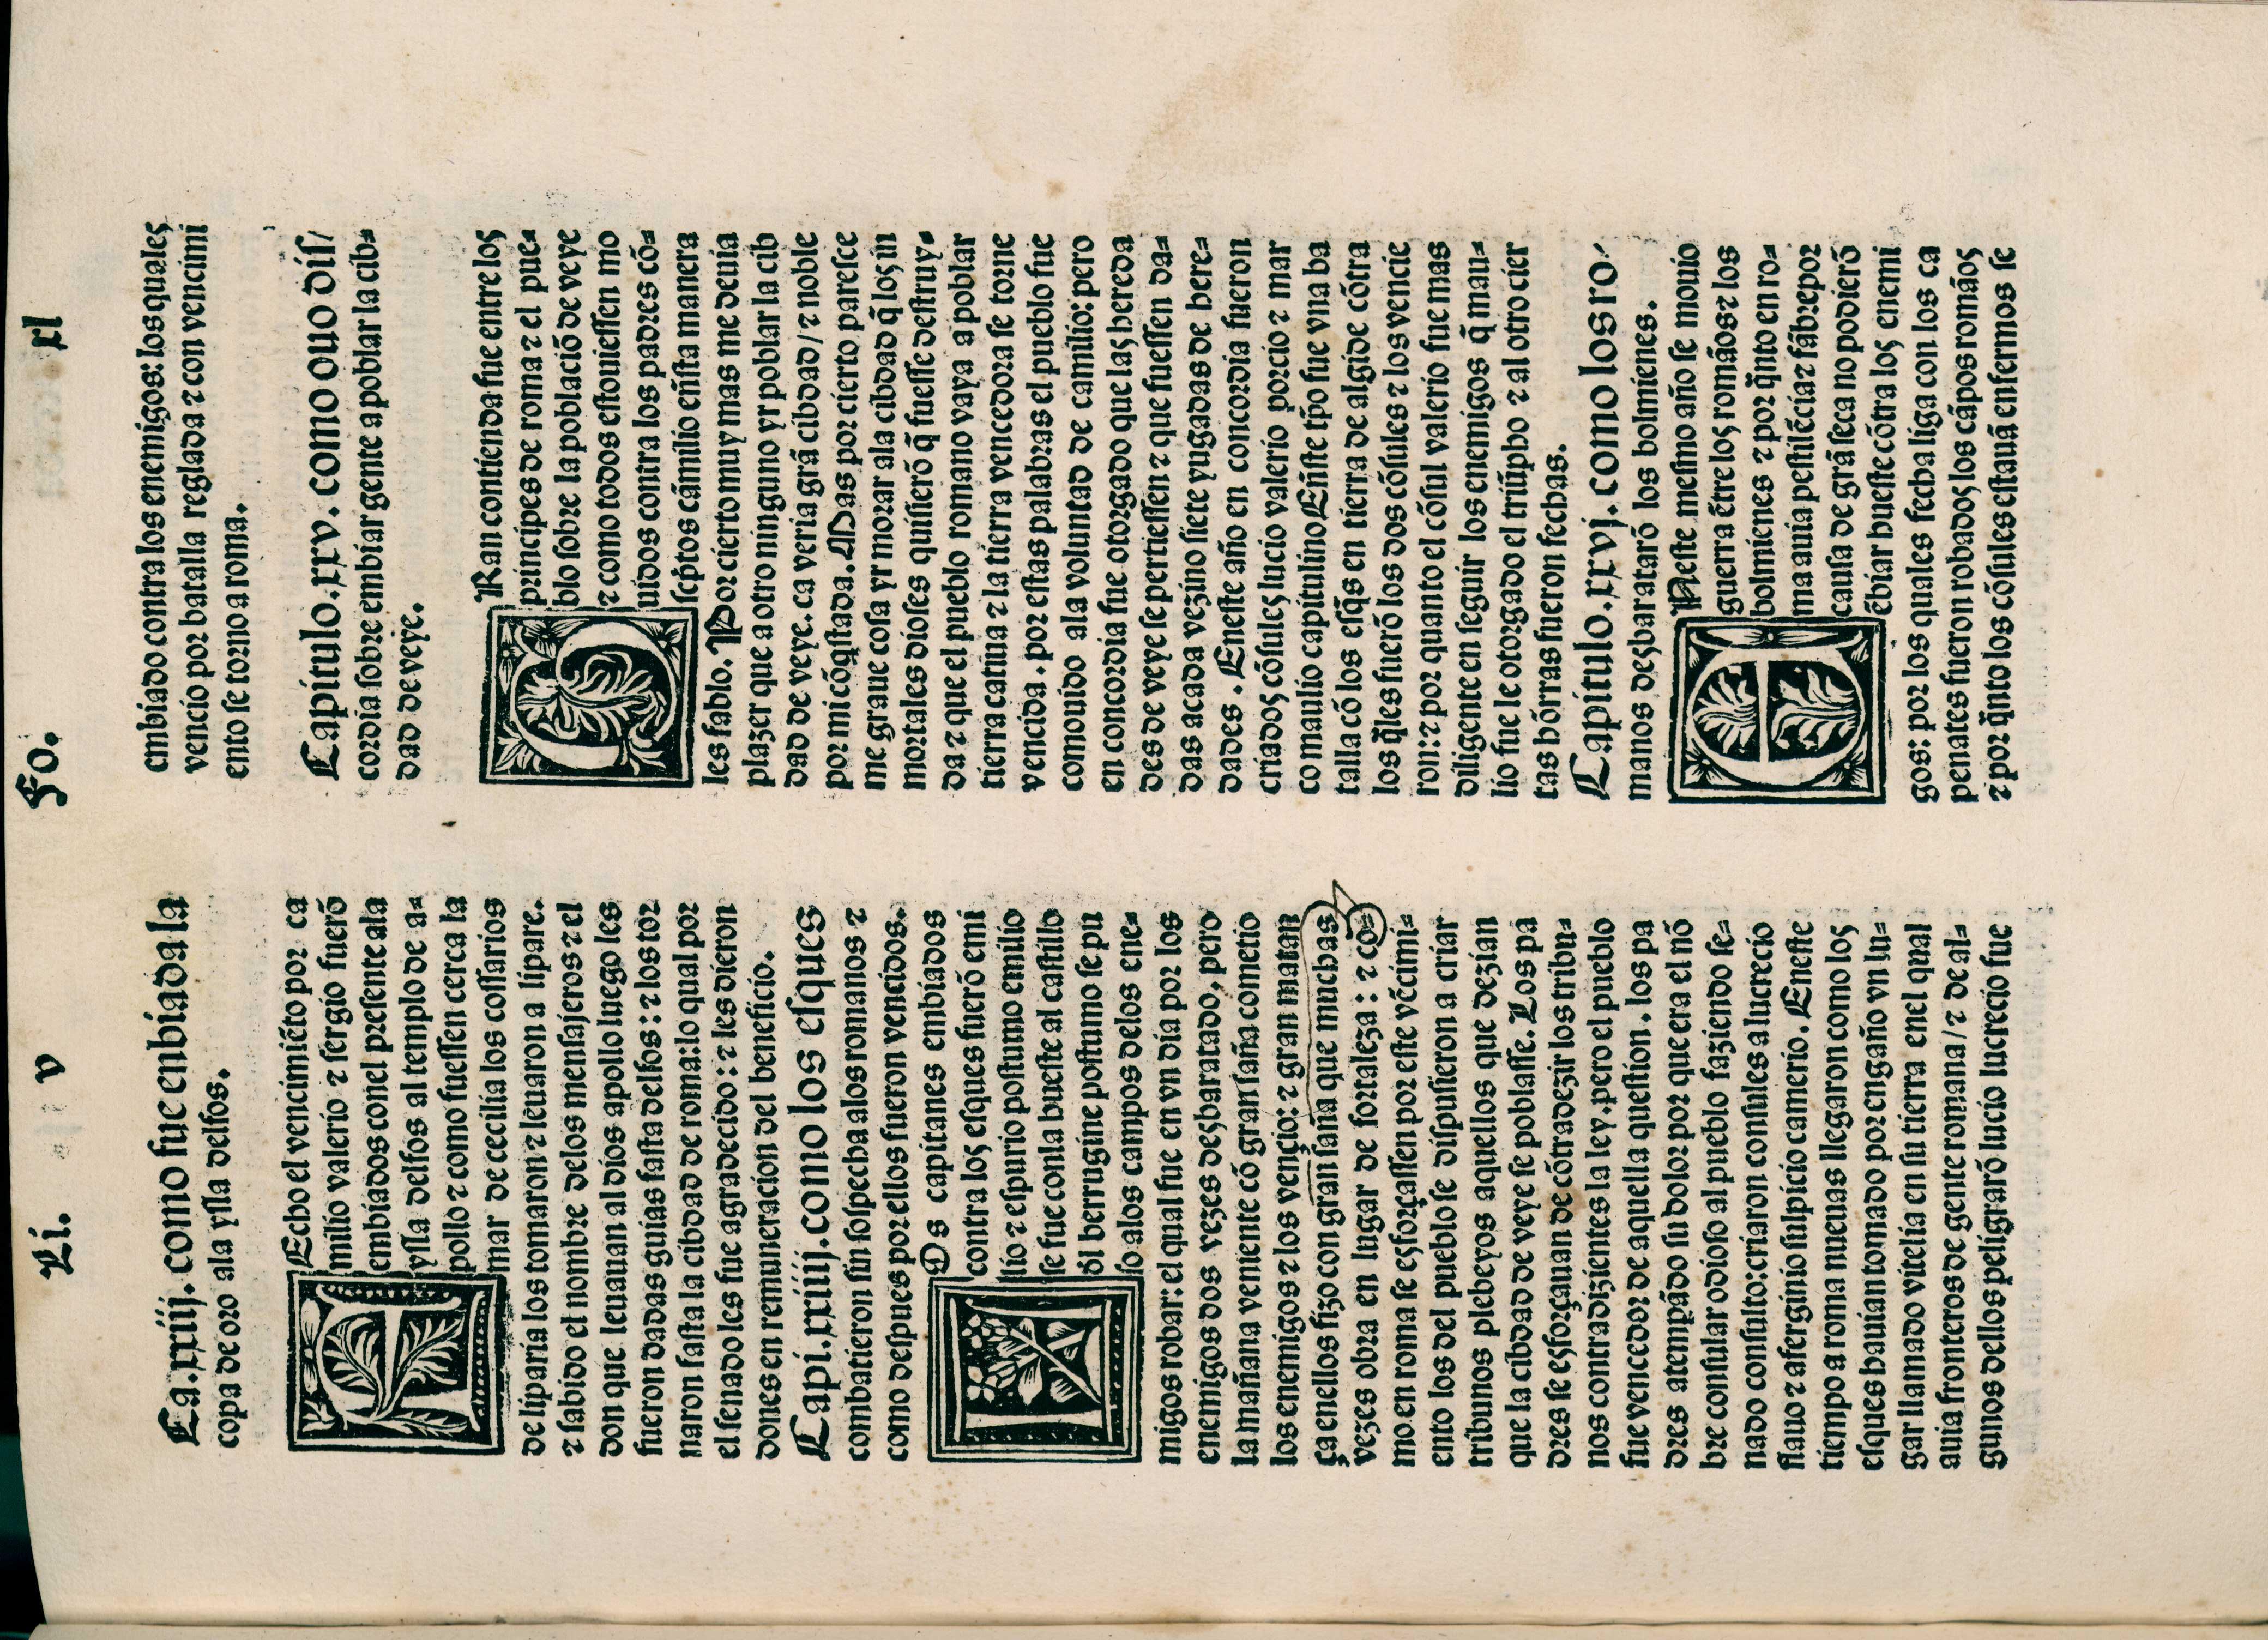 Li. v Fo. xl
Ca.xxiij.como fue enbiada la
copa de oro ala ysla delfos.
FEcho el vencimiẽto por ca
milio valerio ⁊ sergio fuerõ
embiados conel presente ala
ysla delfos al templo de a-
pollo ⁊ como fuessen cerca la
mar de cecilia los cossarios
de liparia los tomaron ⁊ leuaron a lipare.
⁊ sabido el nombre delos mensajeros ⁊ el
don que leuauan al dios apollo luego les
fueron dadas guias fasta delfos: ⁊ los tor
naron fasta la cibdad de roma: lo qual por
el senado les fue agradecido: ⁊ les dieron
dones en remuneracion del beneficio.
Capi.xxiiij.como los esques
combatieron sin sospecha alos romanos ⁊
como despues por ellos fueron vencidos.
LOs capitanes embiados
contra los esques fuerõ emi
lio ⁊ espurio postumo emilio
se fue conla hueste al castillo
dl berrugine postumo se pu
so alos campos delos ene-
migos robar: el qual fue en vn dia por los
enemigos dos vezes desbaratado, pero
la mañana veniente cõ gran saña cometio
los enemigos ⁊ los vençio: ⁊ gran matan
ça enellos fizo con gran saña que muchas
vezes obra en lugar de fortaleza: ⁊ co-
mo en roma se esforçassen por este vẽcimi-
ento los del pueblo se dispusieron a criar
tribunos plebeyos aquellos que dezian
que la cibdad de veye se poblasse. Los pa
dres se esforçauan de cõtradezir los tribu-
nos contradizientes la ley. pero el pueblo
fue vencedor de aquella question. los pa
dres atempãdo su dolor por que era el nõ
bre consular odioso al pueblo faziendo se-
nado consulto: criaron consules a lucrecio
flauo ⁊ aserginio sulpicio camerio. Eneste
tiempo a roma nueuas llegaron como los
esques hauian tomado por engaño vn lu-
gar llamado vitelia en su tierra enel qual
auia fronteros de gente romana/ ⁊ de al-
gunos dellos peligrarõ lucio lucrecio fue
embiado contra los enemigos: los quales
vencio por batalla reglada ⁊ con vencimi
ento se torno a roma.
Capitulo.xxv. como ouo dis/
cordia sobre embiar gente a poblar la cib-
dad de veye.
GRan contienda fue entre los
principes de roma ⁊ el pue-
blo sobre la poblaciõ de veye
⁊ como todos estouiessen mo
uidos contra los padres cõ-
scriptos cãmilio eñsta manera
les fablo. Por cierto muy mas me deuia
plazer que a otro ninguno yr poblar la cib
dad de veye. ca veria grã cibdad/ ⁊ noble
por mi cõq̃stada. Mas por cierto paresce
me graue cosa yr morar ala cibdad q̃ los in
mortales dioses quisierõ q̃ fuesse destruy-
da ⁊ que el pueblo romano vaya a poblar
tierra catiua ⁊ la tierra vencedora se torne
vencida. por estas palabras el pueblo fue
comouido ala voluntad de camilio: pero
en concordia fue otorgado que las hereda
des de veye se pertiessen ⁊ que fuessen da-
das acada vezino siete yugadas de here-
dades. Eneste año en concordia fueron
criados cõsules lucio valerio porcio ⁊ mar
co maulio capitulino Eñste tp̃o fue vna ba
talla cõ los esq̃s en tierra de algide cõtra
los q̃les fuerõ los dos cõsules ⁊ los vencie
ron: ⁊ por quanto el cõsul valerio fue mas
diligente en seguir los enemigos q̃ mau-
lio fue le otorgado el triũpho ⁊ al otro cier
tas hõrras fueron fechas.
Capitulo.xxvj. como los ro-
manos desbaratarõ los bolmienes.
ENeste mesmo año se mouio
guerra ẽtre los romãos ⁊ los
bolmienes ⁊ por q̃nto en ro-
ma auia pestilẽcia ⁊ fãbre por
causa de grã seca no podierõ
ẽbiar hueste cõtra los enemi
gos: por los quales fecha liga con los ca
penates fueron robados los cãpos romãos
⁊ por q̃nto los cõsules estauã enfermos se